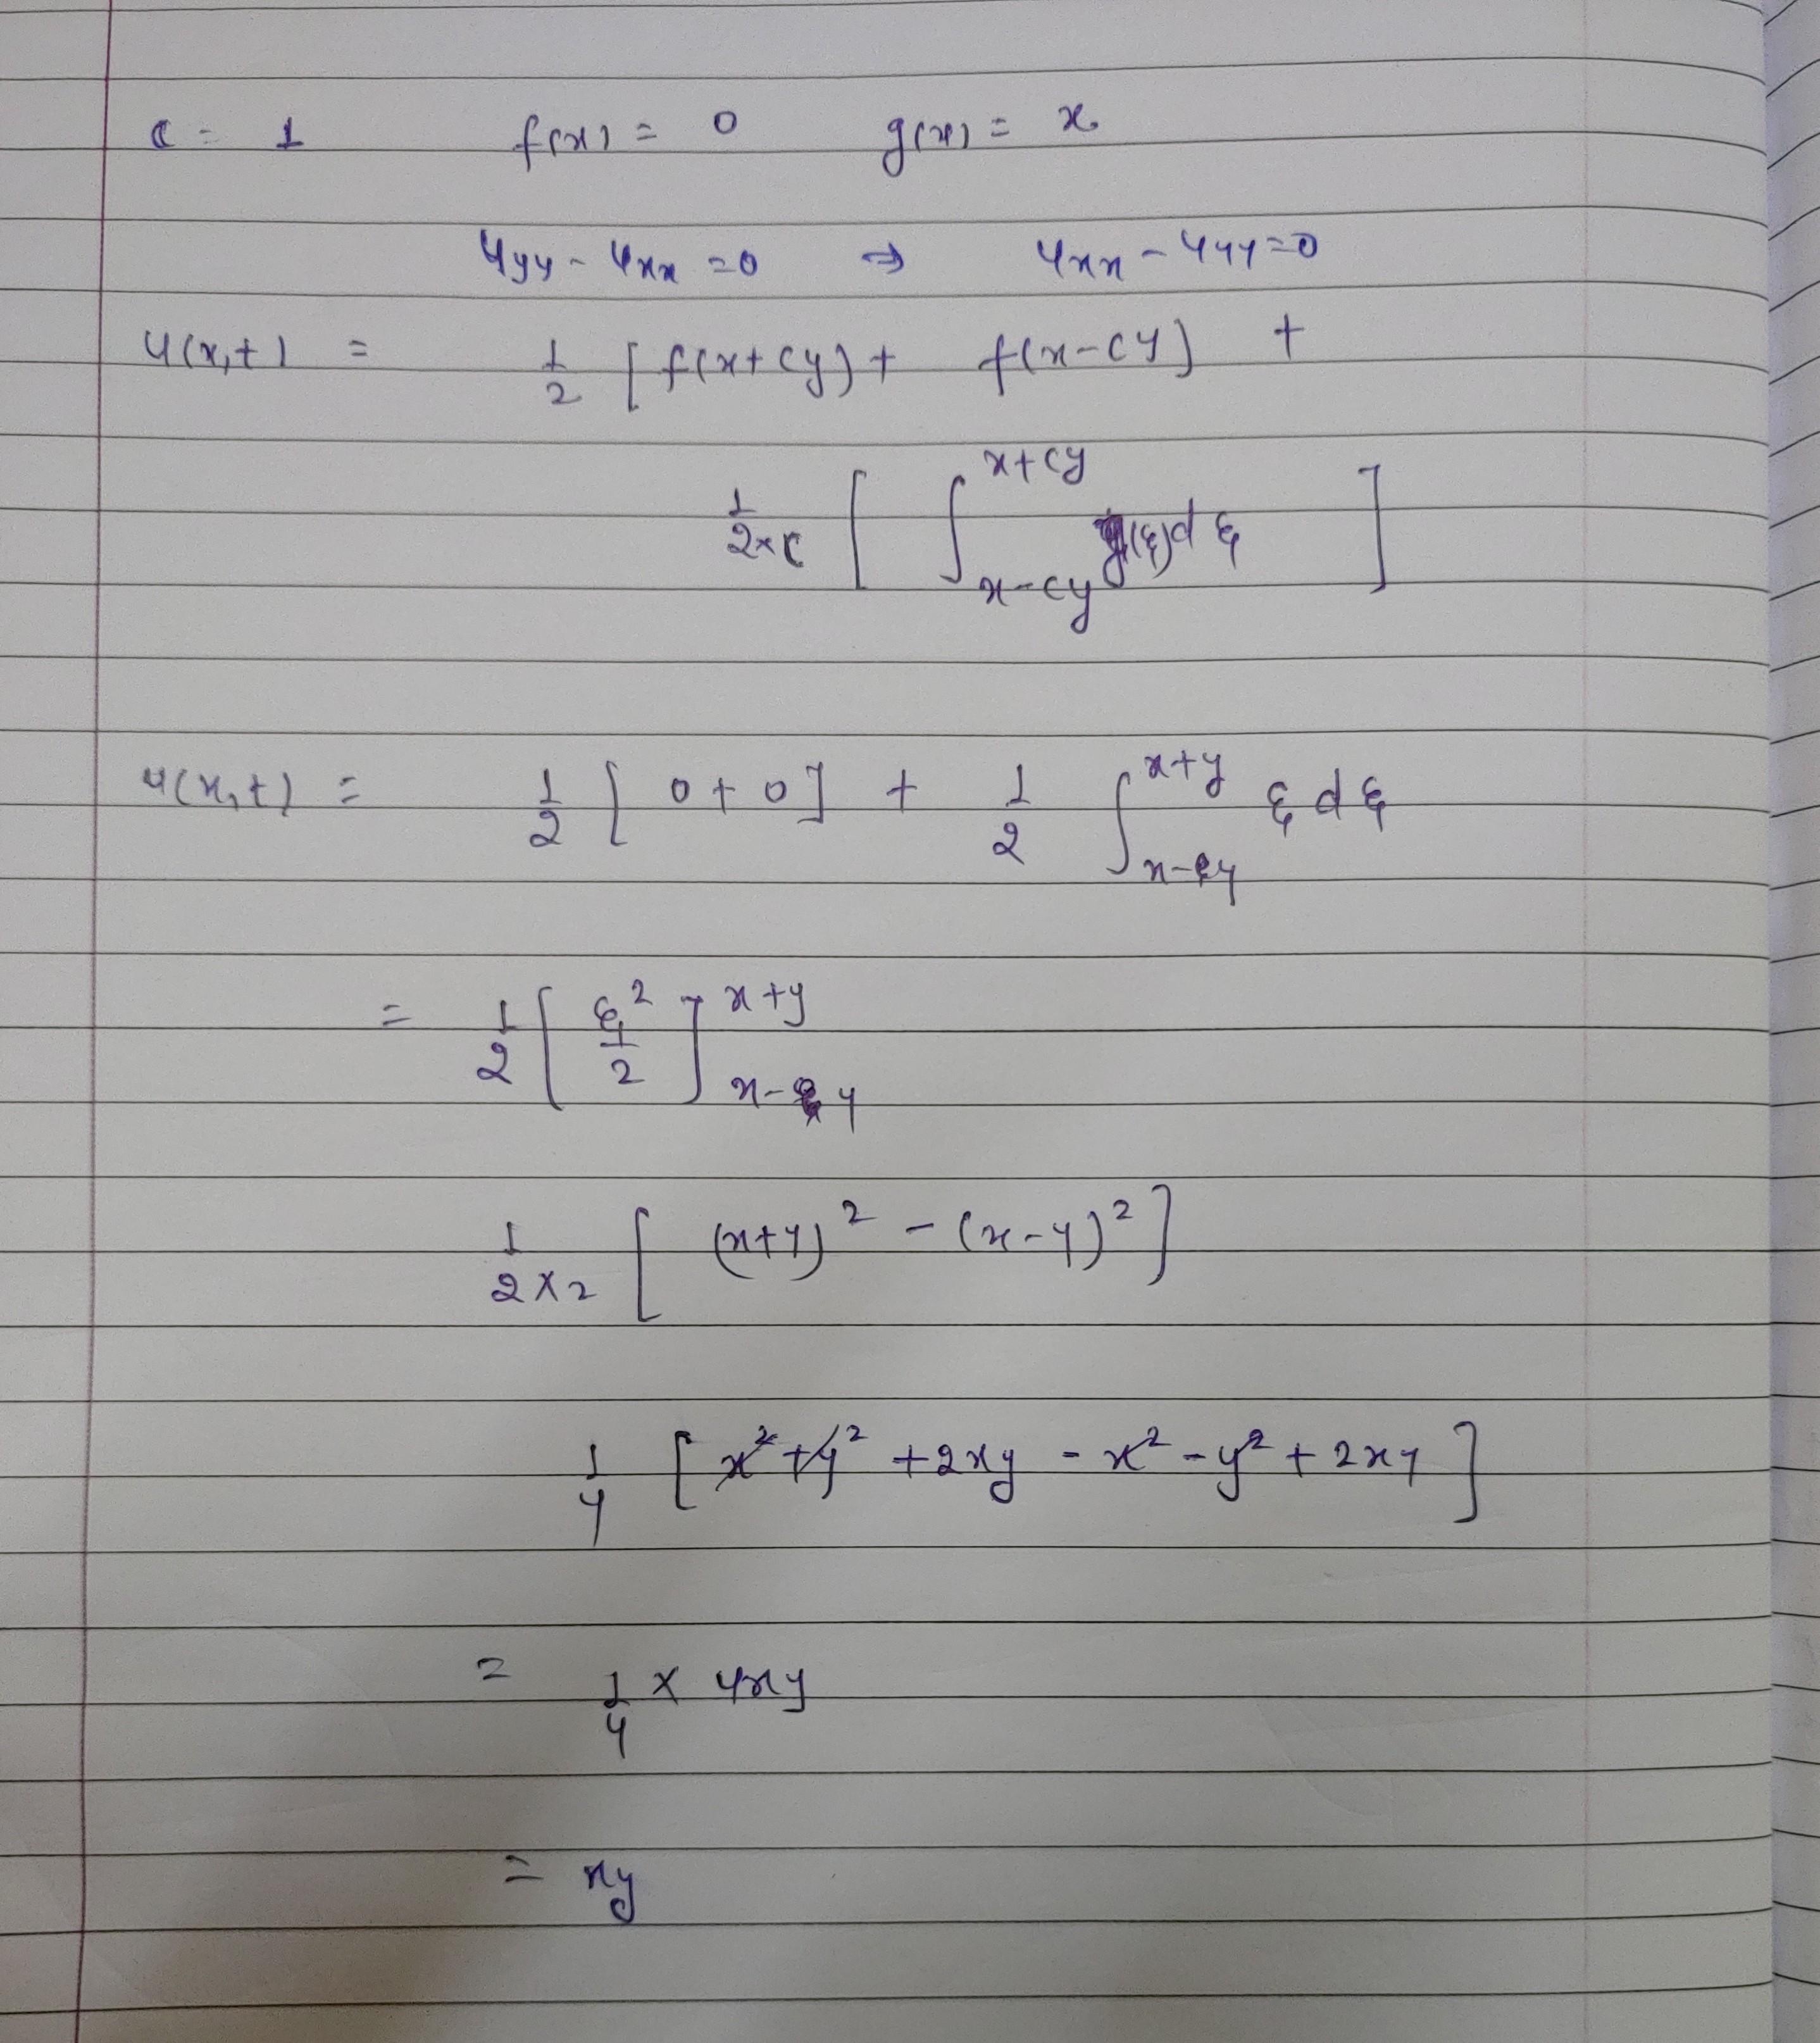 c = 1 f(x) = 0 g(x) = x
uyy - uxx = 0 ⇒ uxx - uyy = 0
u(x,t) = 1/2 [f(x+cy) + f(x-cy)] +
1/2×c [ ∫_{x-cy}^{x+cy} g(ξ)dξ ]
u(x,t) = 1/2 [0+0] + 1/2 ∫_{x-y}^{x+y} ξ dξ
= 1/2 [ξ²/2]_{x-y}^{x+y}
1/2×2 [(x+y)² - (x-y)²]
1/4 [x² + y² + 2xy - x² - y² + 2xy]
= 1/4 × 4xy
= xy